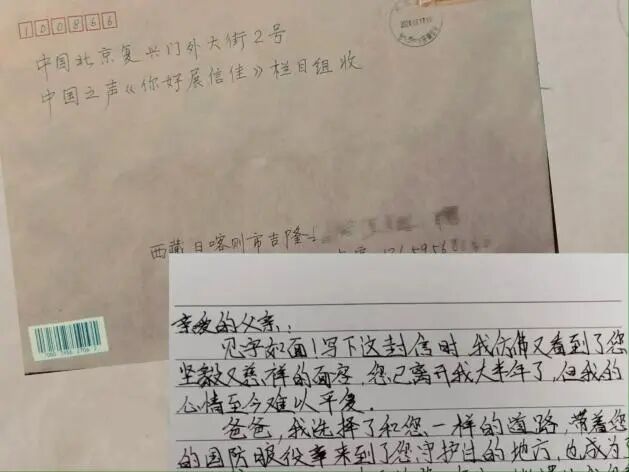 100866
中国北京复兴门外大街2号
中国之声《你好展信佳》栏目组 收
西藏日喀则市吉隆
亲爱的父亲：
见字如面！写下这封信时，我仿佛又看到了您
坚毅又慈祥的面容，您已离开我大半年了，但我的
心情至今难以平复。
爸爸，我选择了和您一样的道路，带着您
的国防服役章来到了您守护过的地方，也成为了